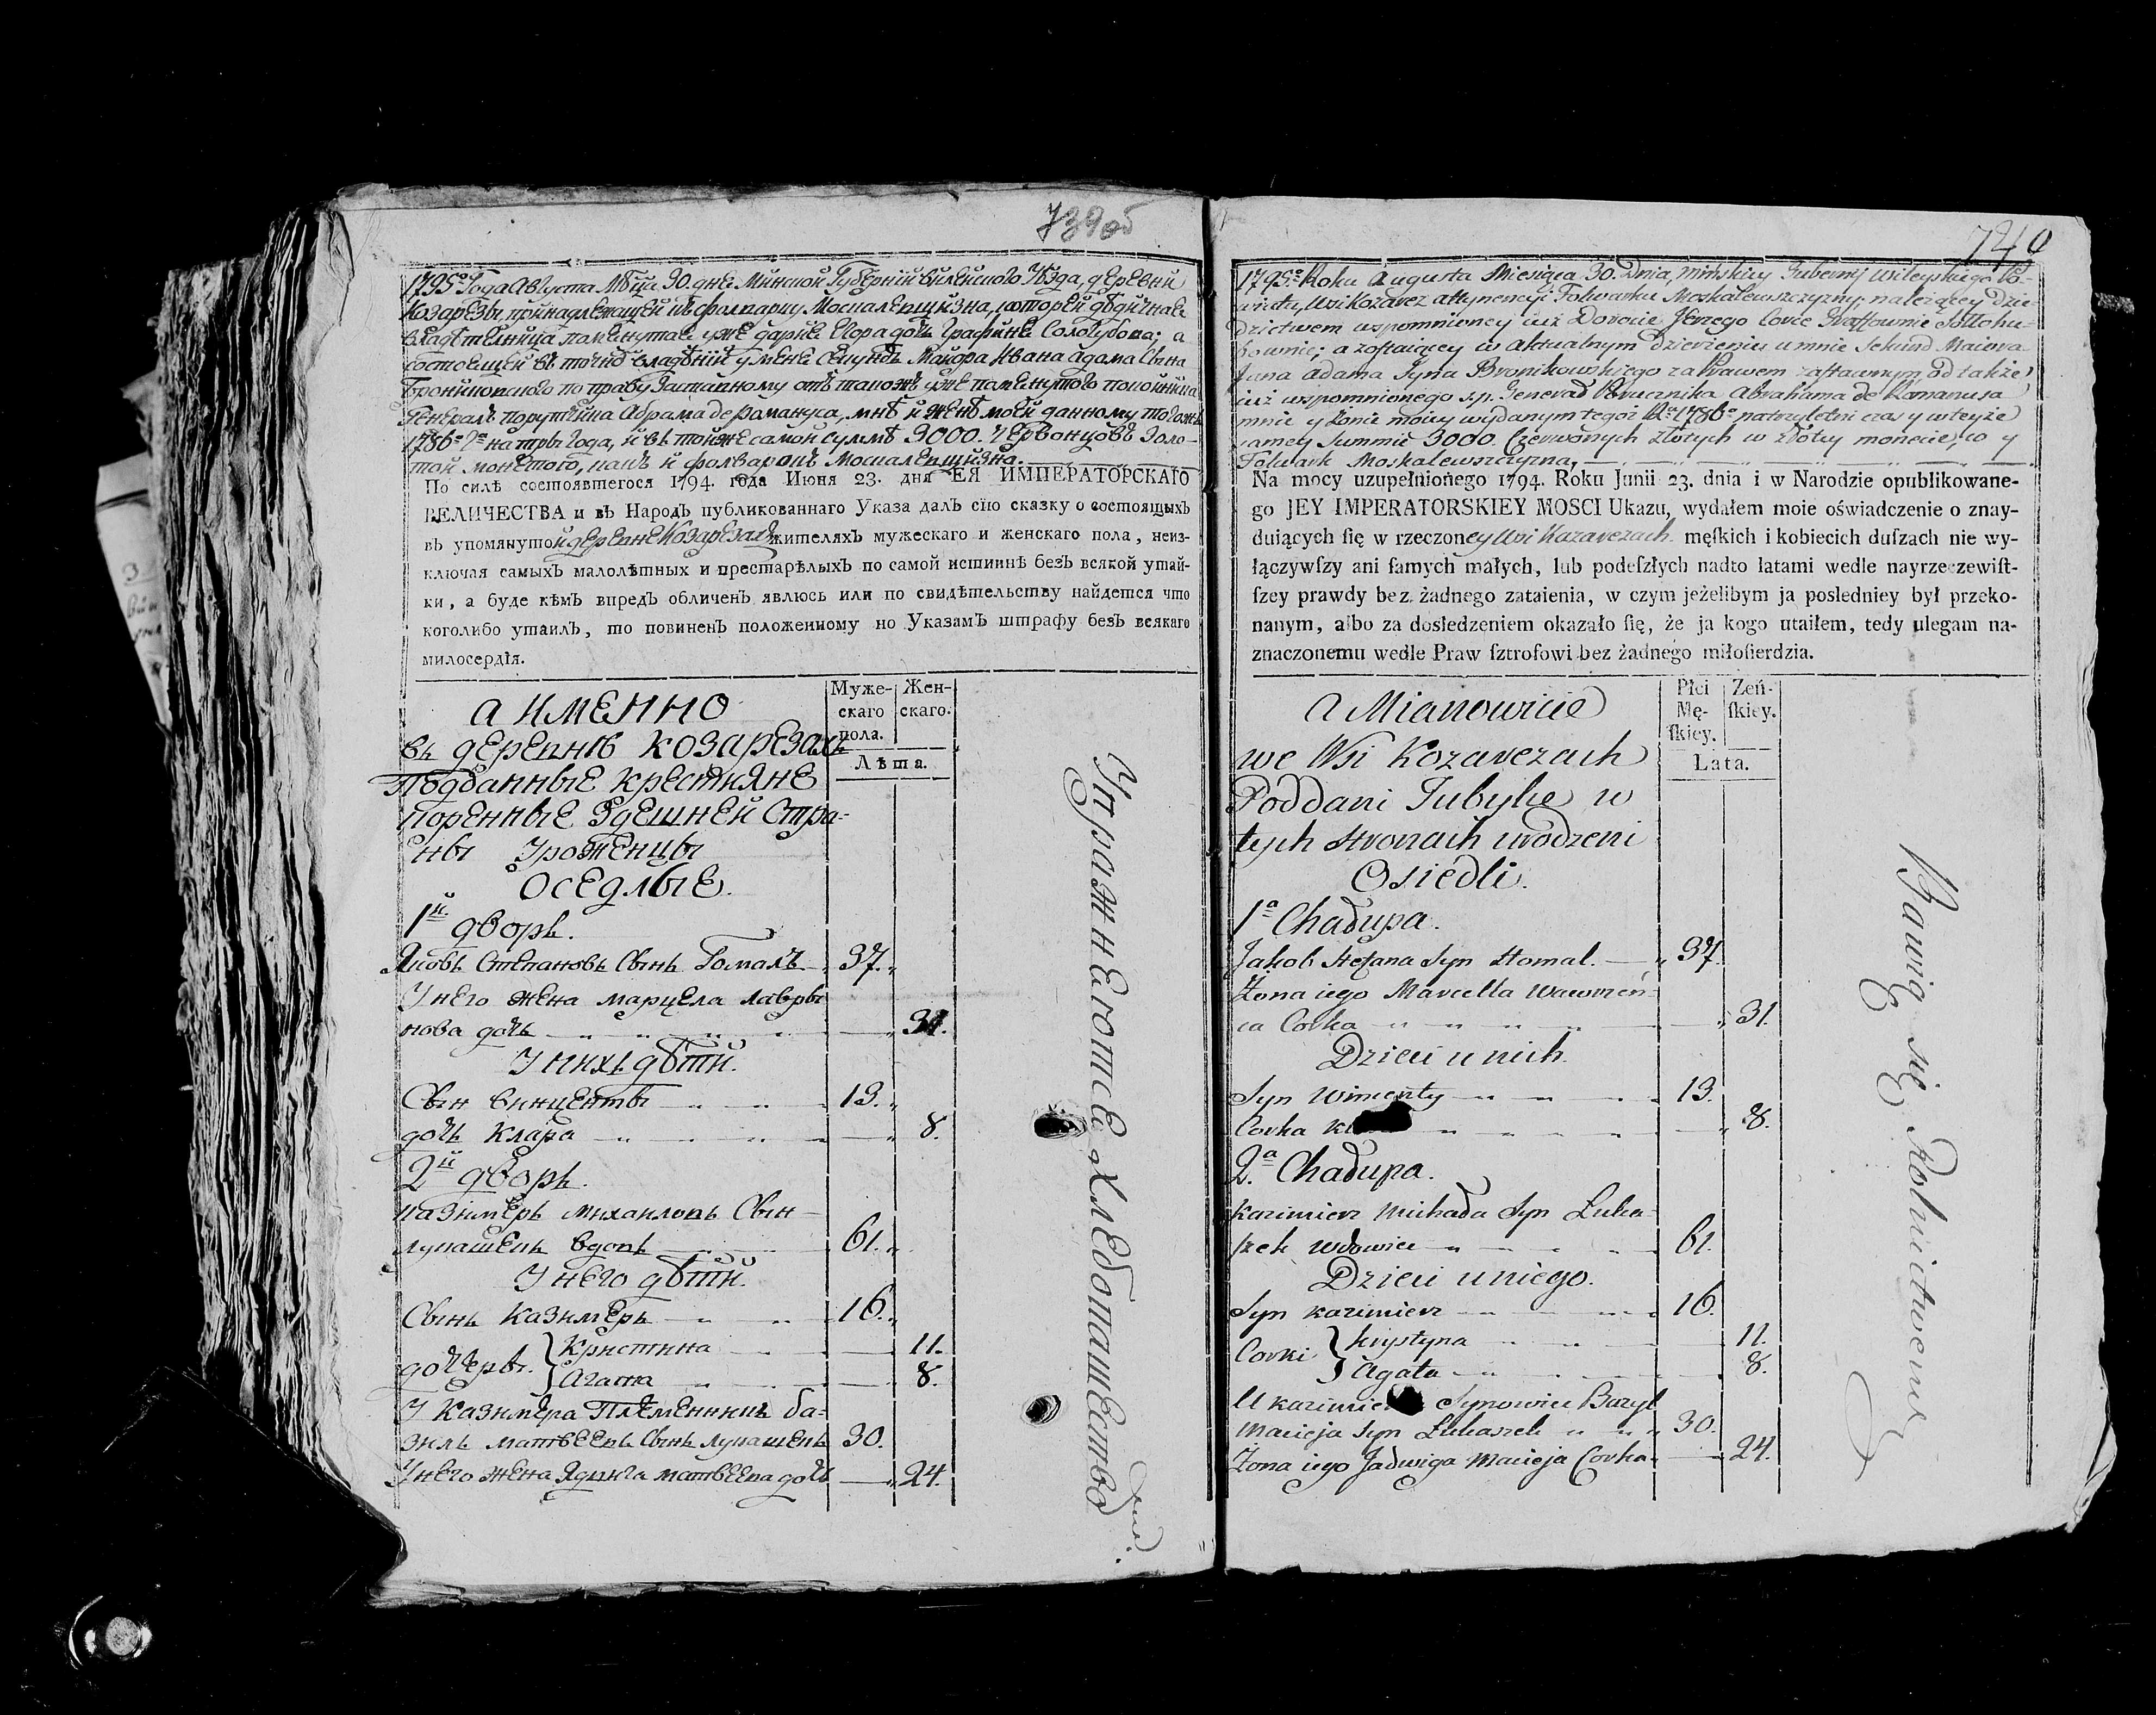 739об
1795го Года Августа Мѣца 30. дня Минской Губерніи Вилейского Уѣзда, деревни
Козарезъ, принадлежащей къ фолварку Москалевщизна, которой дѣдичная
владѣтелница помянутая уже Дарія Егора дочь Графиня Сологубова; а
состоящей въ точно владѣніи у мене Секундъ Маіора Ивана Адама Сына
Брониковского по праву заставному отъ такожъ уже помянутого покойника
Генералъ Порутчика Абрама де Романуса, мнѣ и женѣ моей данному тогожъ
1786го Го на три Года, и въ тойже самой суммѣ 3000. Червонцовъ Золо-
той монетою, какъ и фолваркъ Москалевщизна.
По силѣ состоявшегося 1794. года Июня 23. дня ЕЯ ИМПЕРАТОРСКАГО
ВЕЛИЧЕСТВА и въ Народъ публикованнаго Указа далъ сїю сказку о состоящыхъ
въ упомянутой деревне Козарезахъ жителяхъ мужескаго и женскаго пола, неиз-
ключая самыхъ малолѣтныхъ и престарѣлыхъ по самой истиннѣ безъ всякой утай-
ки, а буде кѣмъ впредъ обличенъ явлюсь или по свидѣтельству найдется что
коголибо утаилъ, то повиненъ положенному но Указамъ штрафу безъ всякаго
милосердїя.
а имЕнно
Муже-
скаго
пола.
Жен-
скаго.
Лѣта.
въ деревнѣ козарезахъ
Подданные крестияне
коренные здешней Стра-
ны Уроженцы
Оседлые.
1й дворъ.
Яковъ Степановъ Сынъ Гомалъ 37.
У него жена марцела лавры
нова дочь 31.
У нихъ дѣти.
Сын винценты 13.
дочь Клара 8.
2й дворъ.
казимеръ михаиловъ Сын
лукашекъ вдовъ 61.
У него дѣти.
Сынъ казимеръ 16.
дочеры. Кристина 11.
Агата 8.
У казимера Племенникъ ба-
зилъ матвеевъ Сынъ лукашекъ 30.
У него жена Ядвига матвеева дочь 24.
Упражняютсе хлебопашество
740
1795o Roku Augusta Miesiąca 30. Dnia, Minskiey Gubernij Wileyskiego Po-
wiatu, Wsi Kozarez attynencyi Folwarku Moskalewszczyzny, należącey Dzie-
dzictwem wspomnioney iuż Dorocie Jerzego Corce Graffownie Sołłohu-
bownie; a zostaiącey w Aktualnym dzierżeniu u mnie Sekund Maiora
Jana Adama Syna Bronikowskiego za Prawem zastawnym od także
iuż wspomnionego s.p. Generał Porucznika Abrahama de Romanusa
mnie y Żonie moiey wydanym tegoż Ro 1786o na trzyletni czas y w teyże
samey Summie 3000. Czerwonych Złotych w złotey monecie, co y
Folwark Moskalewszczyzna.
Na mocy uzupełnionego 1794. Roku Junii 23. dnia i w Narodzie opublikowane-
go JEY IMPERATORSKIEY MOSCI Ukazu, wydałem moie oświadczenie o znay-
duiących ſię w rzeczoney Wsi Kozarezach męſkich i kobiecich duſzach nie wy-
łączywſzy ani ſamych małych, lub podeſzłych nadto latami wedle nayrzeczewiſt-
ſzey prawdy bez żadnego zataienia, w czym jeżelibym ja posledniey był przeko-
nanym, albo za dosledzeniem okazało ſię, że ja kogo utaiłem, tedy ulegam na-
znaczonemu wedle Praw ſztrofowi bez żadnego miłoſierdzia.
a Mianowicie
Płci
Mę-
ſkiey.
Żeń-
ſkiey.
Lata.
we Wsi Kozarezach
Poddani Tubylcy w
tych stronach urodzeni
Osiedli.
1a Chałupa.
Jakob Stefana Syn Homal. 37.
Żona iego Marcella Wawrzeń-
ca Corka 31.
Dzieci u nich.
Syn Wincenty 13.
Corka 8.
2.a Chałupa.
Kazimierz Michała Syn Łuka-
szek Wdowiec 61.
Dzieci u niego.
Syn Kazimierz 16.
Corki Krystyna 11.
Agata 8.
U Synowiec Bazyl
Macieja Syn Łukaszek 30.
Żona iego Jadwiga Macieja Corka 24.
Bawią się Rolnictwem